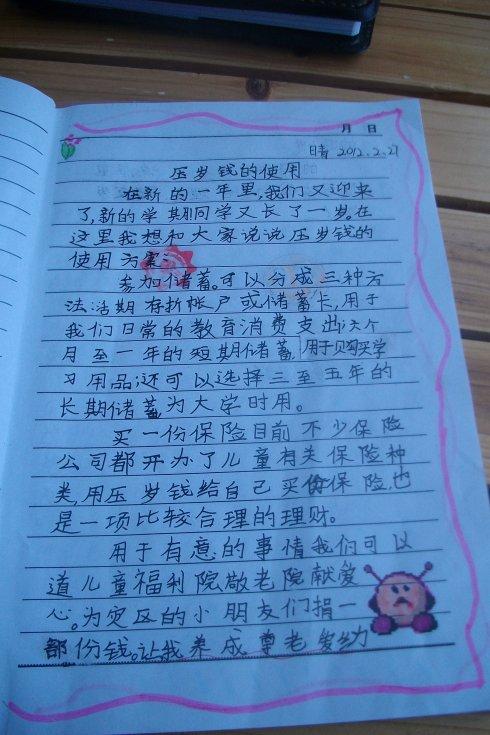 月 日
晴 2012.2.21
压岁钱的使用
在新的一年里,我们又迎来
了,新的学期同学又长了一岁,在
这里我想和大家说说压岁钱的
使用方案:
参加储蓄。可以分成三种方
法:活期存折帐户或储蓄卡,用于
我们日常的教育消费支出;六个
月至一年的短期储蓄,用于购买学
习用品;还可以选择三至五年的
长期储蓄为大学时用。
买一份保险目前不少保险
公司都开办了儿童有关保险种
类,用压岁钱给自己买份保险,也
是一项比较合理的理财。
用于有意的事情我们可以
道儿童福利院敬老院献爱
心。为灾区的小朋友们捐一
部份钱。让我养成尊老爱幼